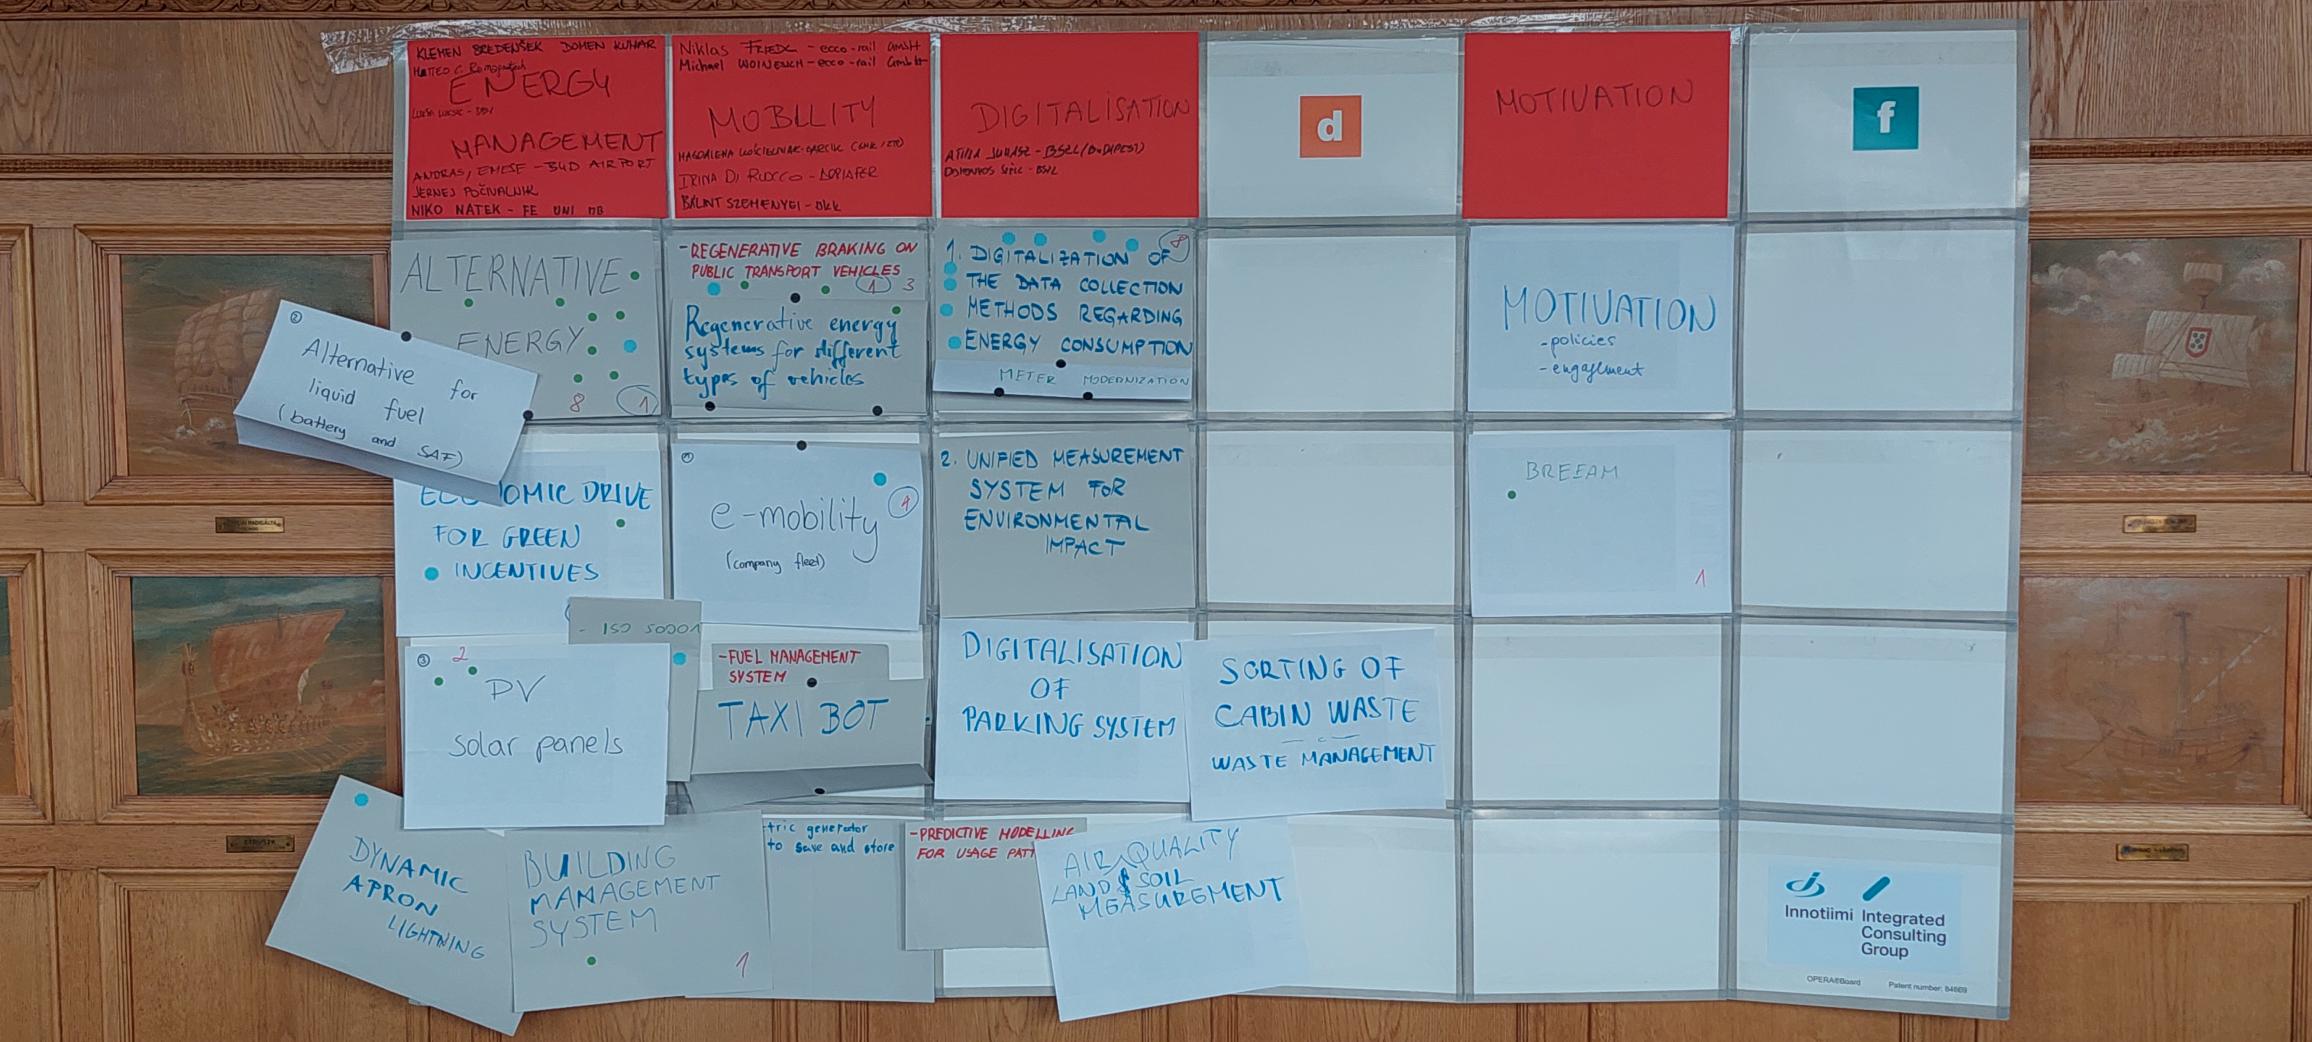 KLEMEN BREDENŠEK DOMEN KUHAR
MATTEO C.
ENERGY
MANAGEMENT
ANDRAS, EMESE - BUD AIRPORT
JERNEJ POČIVALNIK
NIKO NATEK - FE UNI MB
Niklas FRIEDL - ecco-rail GmbH
Michael WOINESICH - ecco-rail GmbH
MOBILITY
IRINA DI RUOCCO -
BÁLINT SZEMENYEI - DKK
DIGITALISATION
ATTILA JUHASZ - BSZL (BUDAPEST)
d
MOTIVATION
f
ALTERNATIVE
ENERGY
8 1
② Alternative for
liquid fuel
(battery and SAF)
- REGENERATIVE BRAKING ON
PUBLIC TRANSPORT VEHICLES
1 3
Regenerative energy
systems for different
types of vehicles
8
1. DIGITALIZATION OF
THE DATA COLLECTION
METHODS REGARDING
ENERGY CONSUMPTION
METER MODERNIZATION
MOTIVATION
- policies
- engagement
ECONOMIC DRIVE
FOR GREEN
INCENTIVES
e-mobility
1
(company fleet)
2. UNIFIED MEASUREMENT
SYSTEM FOR
ENVIRONMENTAL
IMPACT
BREEAM
1
- ISO 50001
③ 2
PV
solar panels
- FUEL MANAGEMENT
SYSTEM
TAXI BOT
DIGITALISATION
OF
PARKING SYSTEM
SORTING OF
CABIN WASTE
WASTE MANAGEMENT
DYNAMIC
APRON
LIGHTNING
BUILDING
MANAGEMENT
SYSTEM
1
tric generator
to save and store
- PREDICTIVE MODELLING
FOR USAGE PATT
AIR QUALITY
LAND & SOIL
MEASUREMENT
Innotiimi Integrated
Consulting
Group
OPERA®Board Patent number: 84869